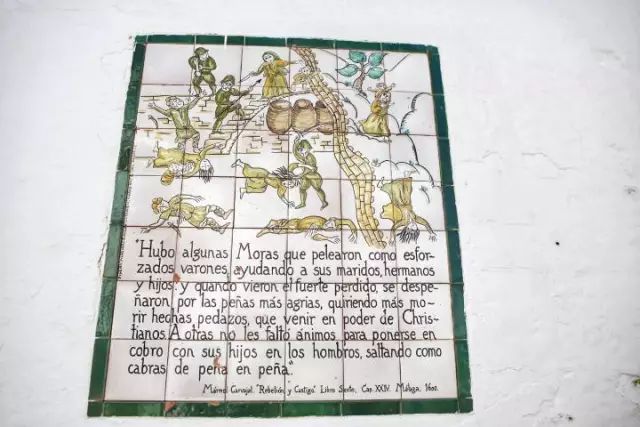 "Hubo algunas Moras que pelearon, como esfor-
zados varones, ayudando a sus maridos, hermanos
y hijos; y quando vieron el fuerte perdido, se despe-
ñaron por las peñas más agrias, quiriendo más mo-
rir hechas pedazos, que venir en poder de Chris-
tianos. A otras no les faltó ánimos para ponerse en
cobro con sus hijos en los hombros, saltando como
cabras de peña en peña".
Mármol Carvajal. "Rebelión y Castigo". Libro Sexto, Cap. XXIV. Málaga, 1600.